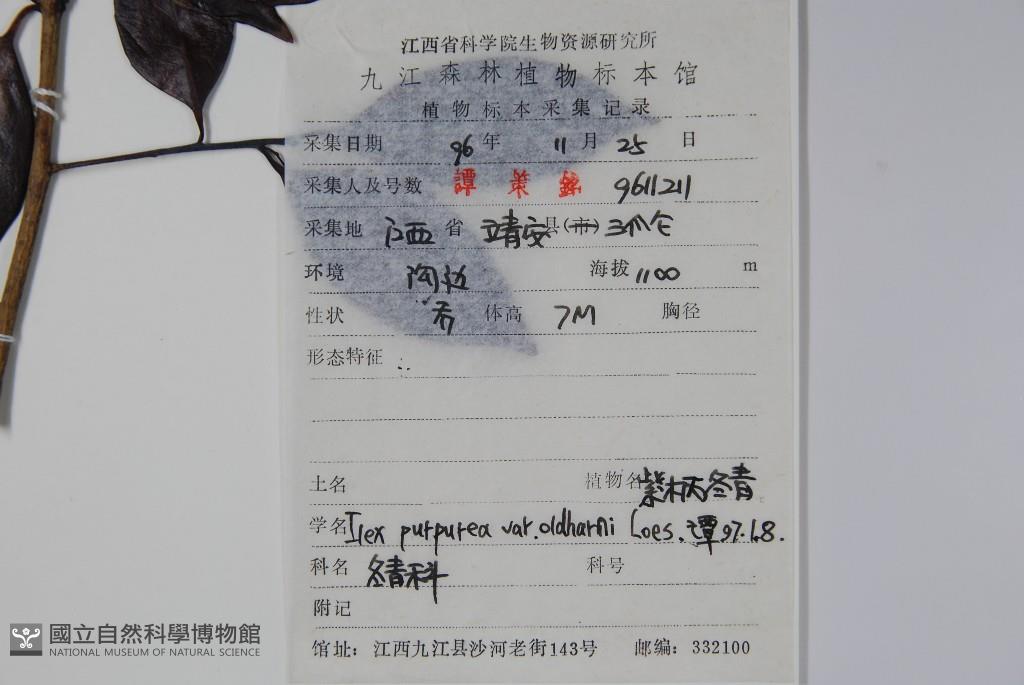 江西省科学院生物资源研究所
九江森林植物标本馆
植物标本采集记录
采集日期 96 年 11 月 25 日
采集人及号数 譚策銘 9611211
采集地 江西 省 靖安 县(市) 三爪仑
环境 海拔 1100 m
性状 乔 体高 7M 胸径
形态特征
土名 植物名 紫柄冬青
学名 Ilex purpurea var. oldhami Loes. 谭 97.1.8.
科名 冬青科 科号
附记
馆址: 江西九江县沙河老街143号 邮编: 332100
國立自然科學博物館
NATIONAL MUSEUM OF NATURAL SCIENCE